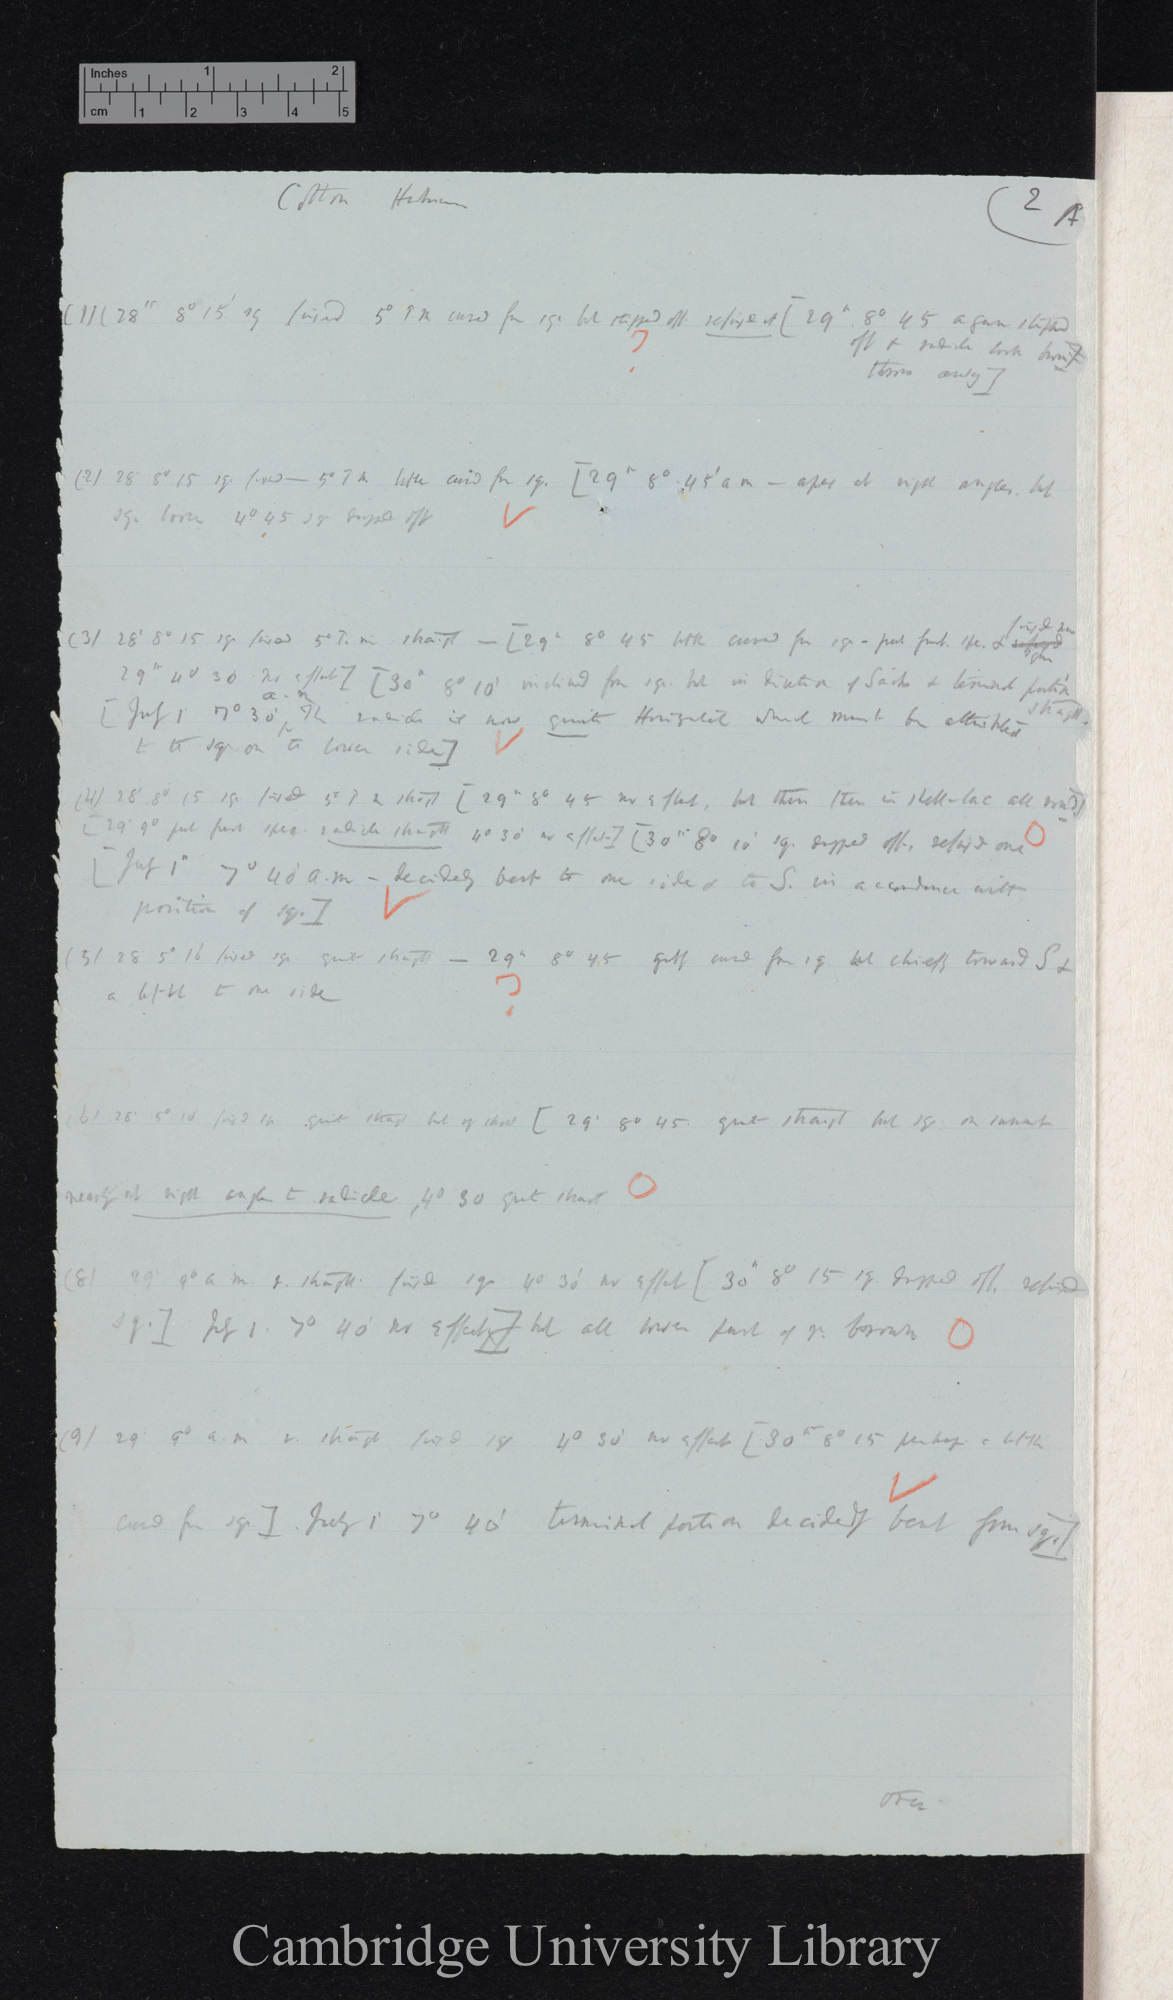 Inches 1 2
cm 1 2 3 4 5
Cotton
2 A
(1) (28th 8° 15' sq fixed 5° P.m curved from sq. but slipped off refixed it [29th 8° 45 again slipped
off & radicle look brown
thrown away]
(2) 28 8° 15 sq. fixed — 5° P.m little curved from sq. [29th 8° 45' a m — apex at right angles. but
sq. loose 4° 45 sq dropped off
(3) 28' 8° 15 sq. fixed 5° P.m straight — [29th 8° 45 little curved from sq. - put fresh &
29th 4° 30 no effect] [30th 8° 10' inclined from sq. but in direction of Sachs & terminal portion
straight.
a. m
[July 1' 7° 30', The radicle is now quite Horizontal which must be attributed
to the sq. on the lower side]
(4) 28' 8° 15 sq. fixed 5° P m straight [29th 8° 45 no effect, but then in shell-lac all round]
[29' 9° put fresh radicle straight 4° 30' no effect] [30th 8° 10' sq. dropped off, refixed one
[July 1st 7° 40' a.m — decidedly bent to one side & to S. in accordance with
position of sq.]
(5) 28 5° 10' fixed sq. quite straight — 29th 8° 45 curved from sq but chiefly toward S &
a little to one side
(6) 28 5° 10' fixed quite straight but [29' 8° 45. quite straight but sq. on summit
nearly at right angles to radicle, 4° 30 quite straight
(8) 29' 9° a m. r. straight. fixed sq. 4° 30' no effect [30th 8° 15 sq. dropped off. refixed
sq.] July 1. 7° 40' no effect] but all lower part of r. brown
(9) 29' 9° a.m r. straight fixed sq. 4° 30' no effect [30th 8° 15 perhaps a little
curved from sq.]. July 1' 7° 40' terminal portion decidedly bent from sq.]
over
Cambridge University Library